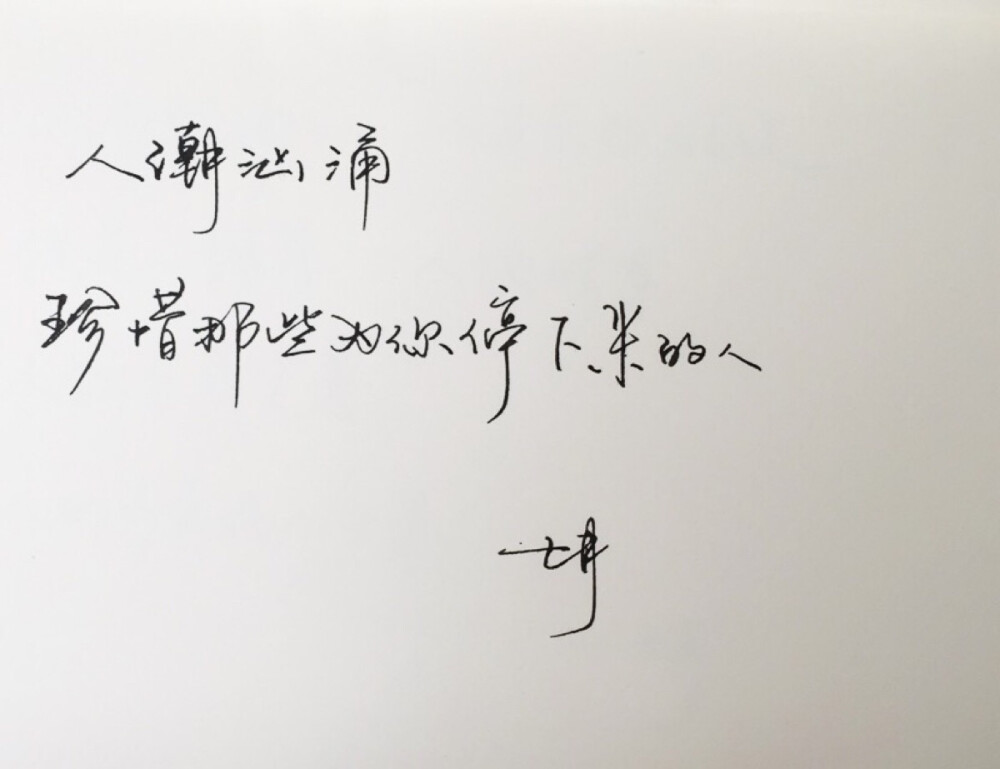 人潮汹涌
珍惜那些为你停下来的人